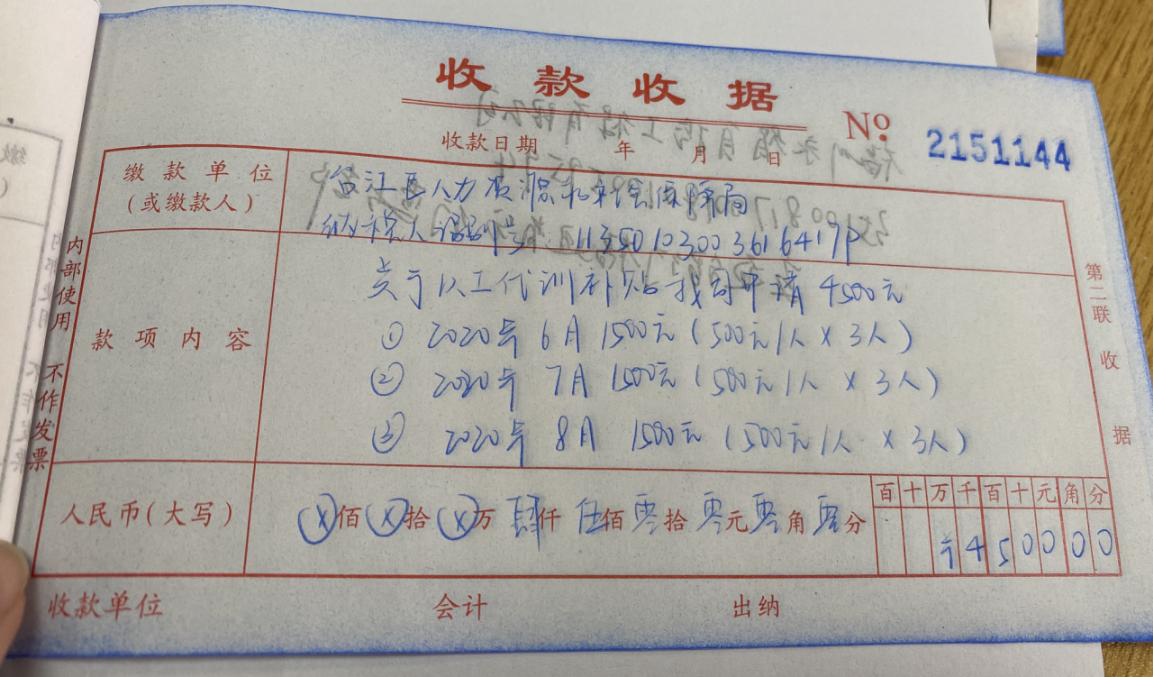 收款收据
收款日期 年 月 日
No. 2151144
缴款单位
(或缴款人)
台江区人力资源和社会保障局
纳税人识别号 11350103003616417P
款项内容
关于以工代训补贴找苛申请 4500元
① 2020年 6月 1500元(500元/人 × 3人)
② 2020年 7月 1500元(500元/人 × 3人)
③ 2020年 8月 1500元(500元/人 × 3人)
人民币(大写)
ⓧ佰ⓧ拾ⓧ万肆仟伍佰零拾零元零角零分
百十万千百十元角分
¥450000
收款单位 会计 出纳
内部使用 不作发票
第二联 收据